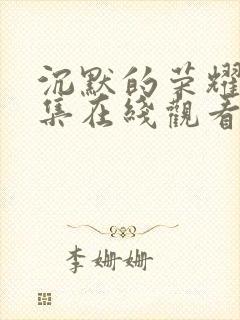 沉默的荣耀
集在綫觀看
李姗姗